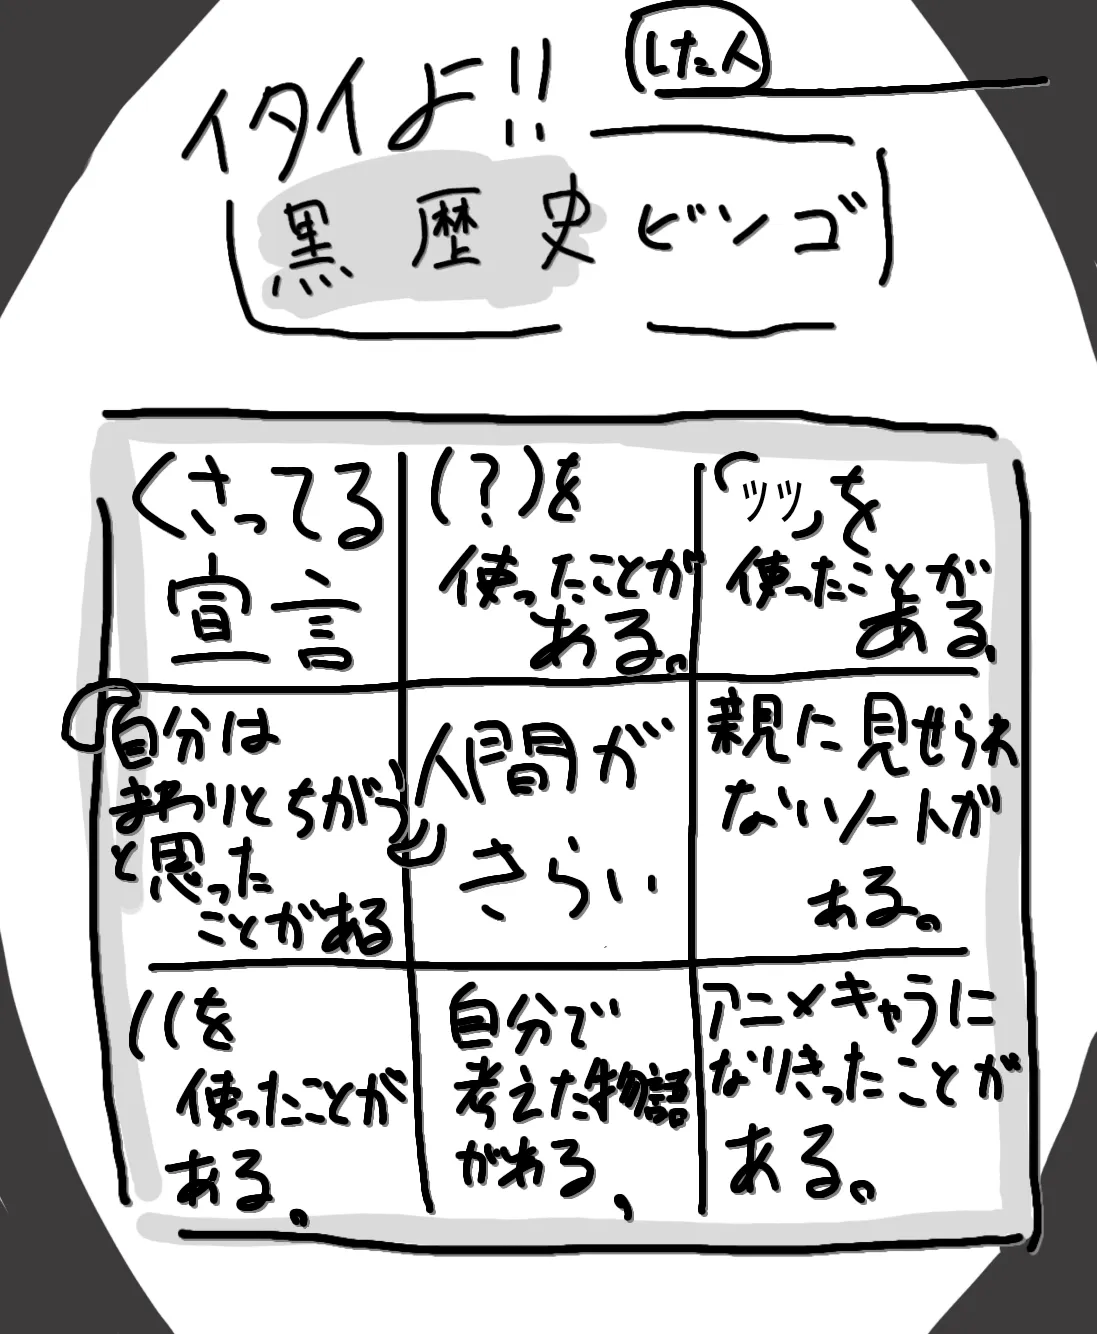 した人
イタイよ!!
黒歴史ビンゴ
くさってる
宣言
(?)を
使ったことが
ある。
「ッッ」を
使ったことが
ある。
「自分は
まわりとちがう」
と思った
ことがある
人間が
きらい
親に見せられ
ないノートが
ある。
((を
使ったことが
ある。
自分で
考えた物語
がある。
アニメキャラに
なりきったことが
ある。